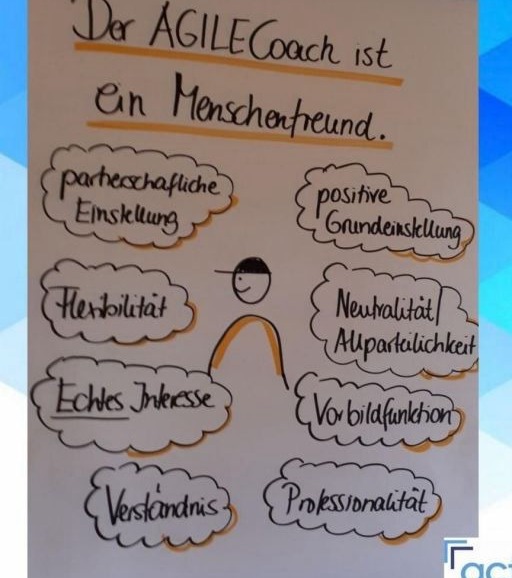 Der AGILE Coach ist
ein Menschenfreund.
partnerschafliche
Einstellung
positive
Grundeinstellung
Flexibilität
Neutralität/
Allparteilichkeit
Echtes Interesse
Vorbildfunktion
Verständnis
Professionalität